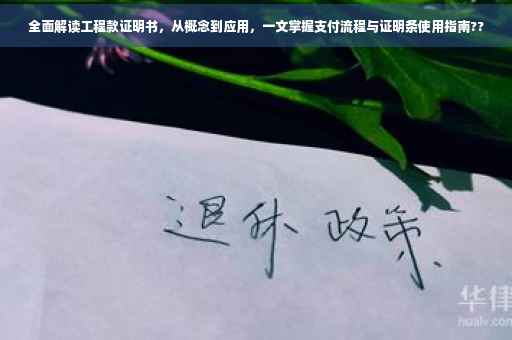 全面解读工程款证明书，从概念到应用，一文掌握支付流程与证明条使用指南??
退休 政策
华律
hualv.com